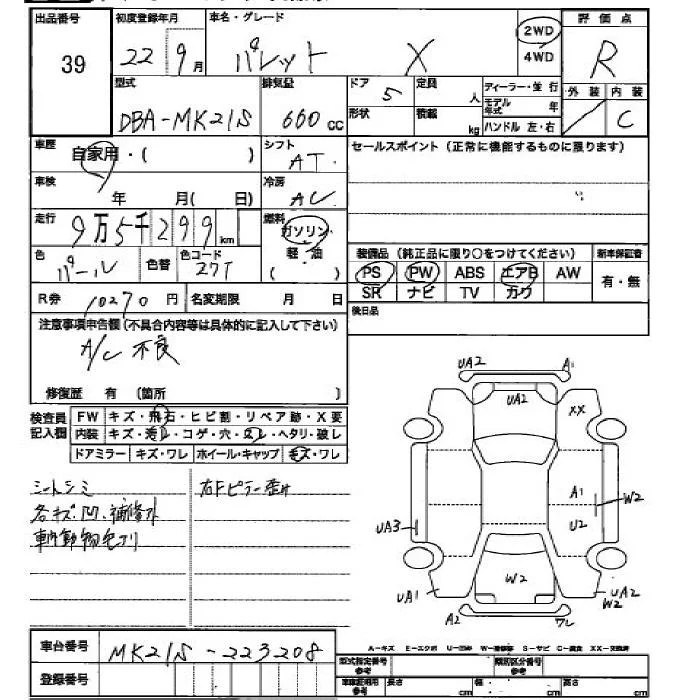 出品番号 初度登録年月 車名・グレード 評価点
39 22 9月 パレット X 2WD 4WD R
型式 排気量 ドア 定員 ディーラー・並行 外装 内装
DBA-MK21S 660cc 5 人 モデル年式 年
形状 積載 kg ハンドル 左・右 C
車歴 自家用・( ) シフト AT セールスポイント (正常に機能するものに限ります)
車検 年 月( 日) 冷房 AC
走行 9万5千299km 燃料 ガソリン 軽・油 ( )
色 パール 色替 色コード 27T
装備品 (純正品に限り○をつけてください) 新車保証書
PS PW ABS エアB AW 有・無
SR ナビ TV カワ
R券 10270円 名変期限 月 日 後日品
注意事項申告欄(不具合内容等は具体的に記入して下さい)
A/C 不良
修復歴 有 [箇所 ]
検査員記入欄 FW キズ・飛石・ヒビ割・リペア跡・X要
内装 キズ・汚レ・コゲ・穴・スレ・ヘタリ・破レ
ドアミラー キズ・ワレ ホイール・キャップ キズ・ワレ
シートシミ 右Fピラー歪ミ
各キズ.凹.補修跡
UA2 A1
UA2
XX
A1 W2
UA3 U2
UA1 W2 UA2 W2
A2 ワレ
車台番号 MK21S-223208
A-キズ E-エクボ U-凹 W-補修跡 S-サビ C-腐食 XX-交換済
登録番号
型式指定番号 参考 類別区分番号 参考
長さ cm 幅 cm 高さ cm